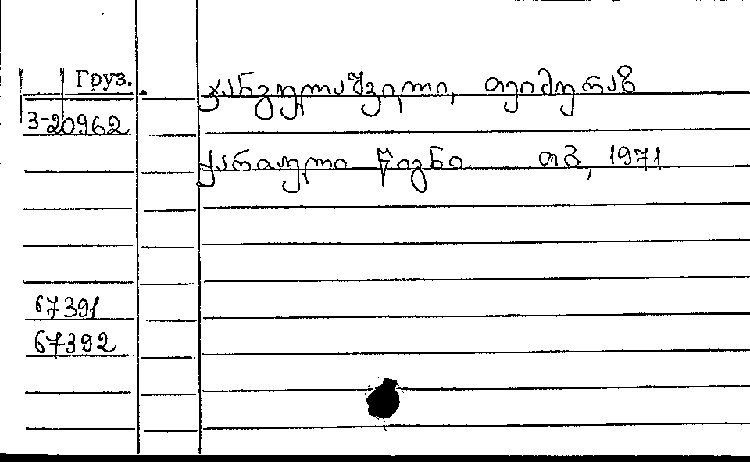 Груз.
ჯანგულაშვილი, თეიმურაზ
3-20962
ქართული წიგნი თბ, 1971
67391
67392